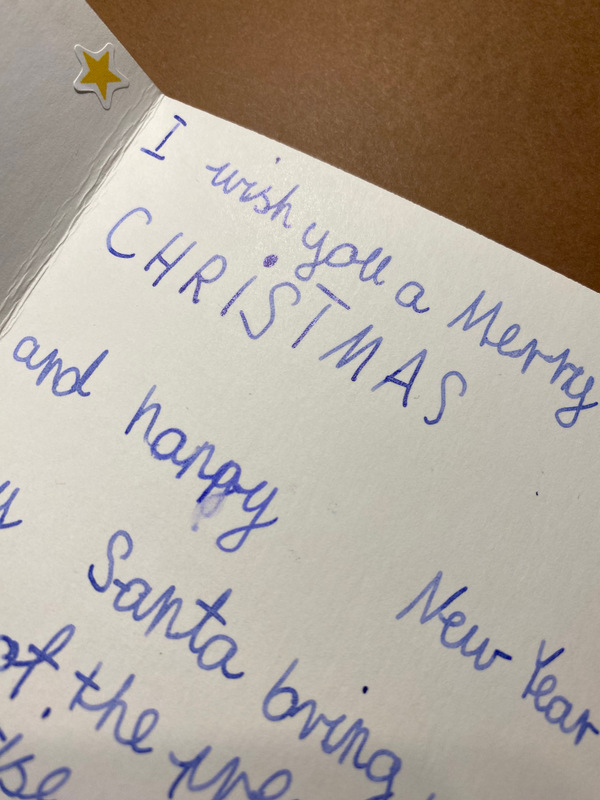 I wish you a Merry
CHRiSTMAS
and happy New Year
Santa bring
the